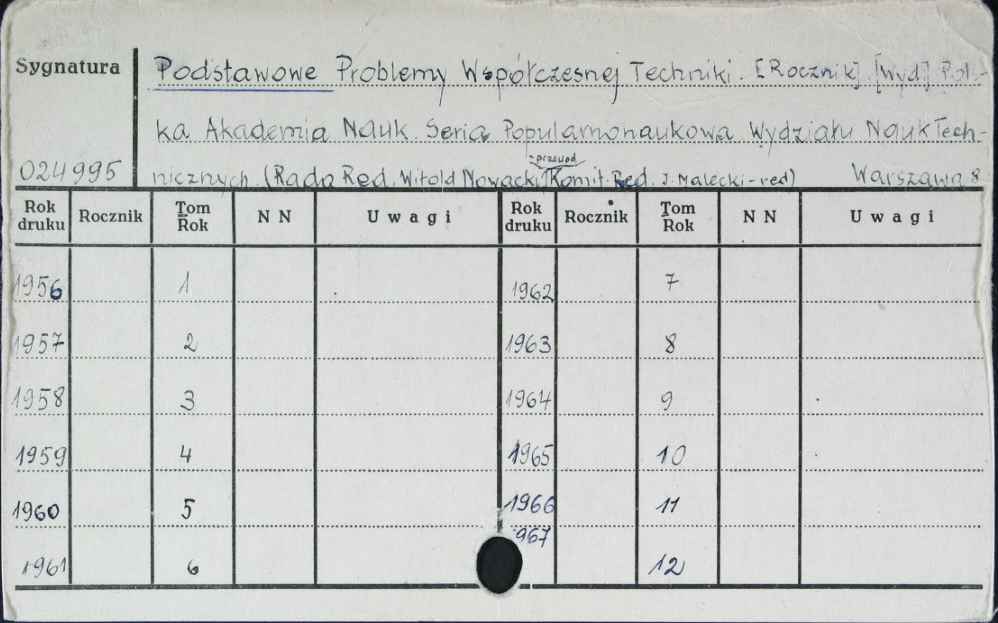 Sygnatura
Podstawowe Problemy Współczesnej Techniki. [Rocznik]. [Wyd] Pol-
ka Akademia Nauk. Seria Popularnonaukowa Wydziału Nauk Tech-
przewod.
024995 nicznych. (Rada Red. Witold Nowacki, Komit. Red. J. Malecki-red) Warszawa 8
Rok druku Rocznik Tom Rok N N Uwagi Rok druku Rocznik Tom Rok N N Uwagi
1956 1 1962 7
1957 2 1963 8
1958 3 1964 9
1959 4 1965 10
1960 5 1966 11
967
1961 6 12